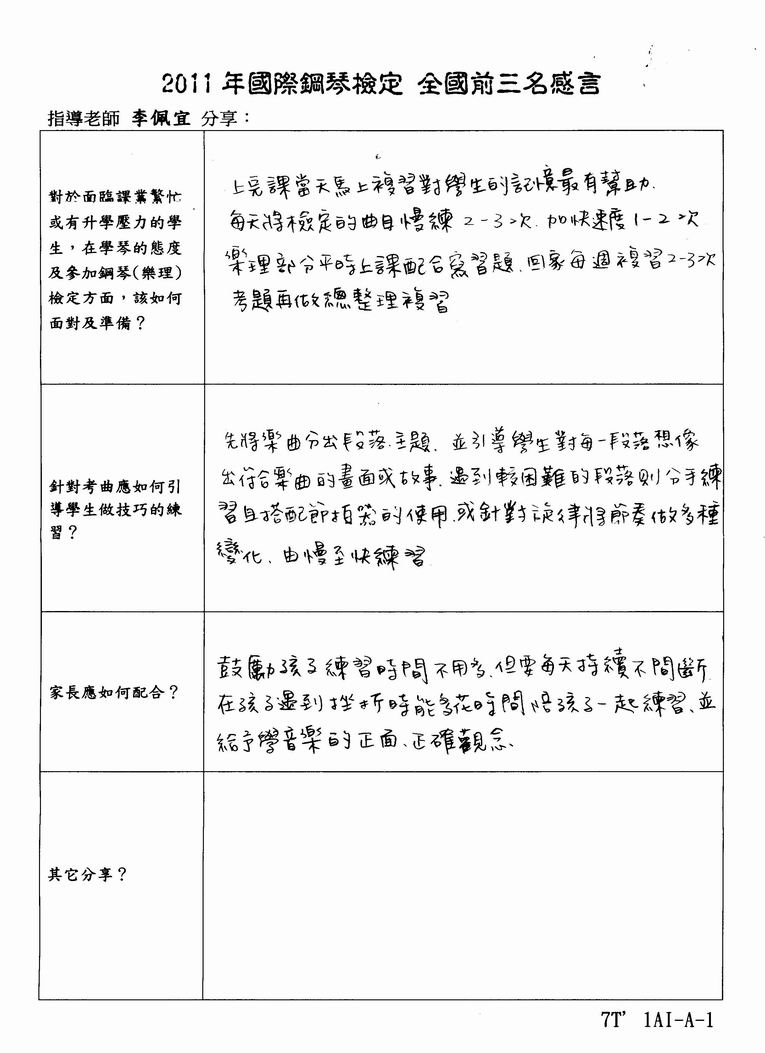 2011 年國際鋼琴檢定 全國前三名感言
指導老師 李佩宜 分享：
對於面臨課業繁忙
或有升學壓力的學
生，在學琴的態度
及參加鋼琴(樂理)
檢定方面，該如何
面對及準備？
上完課當天馬上複習對學生的記憶最有幫助.
每天將檢定的曲目慢練 2-3次. 加快速度 1-2次
樂理部分平時上課配合寫習題.回家每週複習2-3次
考題再做總整理複習
針對考曲應如何引
導學生做技巧的練
習？
先將樂曲分出段落.主題. 並引導學生對每一段落想像
出符合樂曲的畫面或故事.遇到較困難的段落則分手練
習且搭配節拍器的使用.或針對旋律將節奏做多種
變化、由慢至快練習
家長應如何配合？
鼓勵孩子練習時間不用多.但要每天持續不間斷
在孩子遇到挫折時能多花時間陪孩子一起練習、並
給予學音樂的正面、正確觀念、
其它分享？
7T' 1AI-A-1